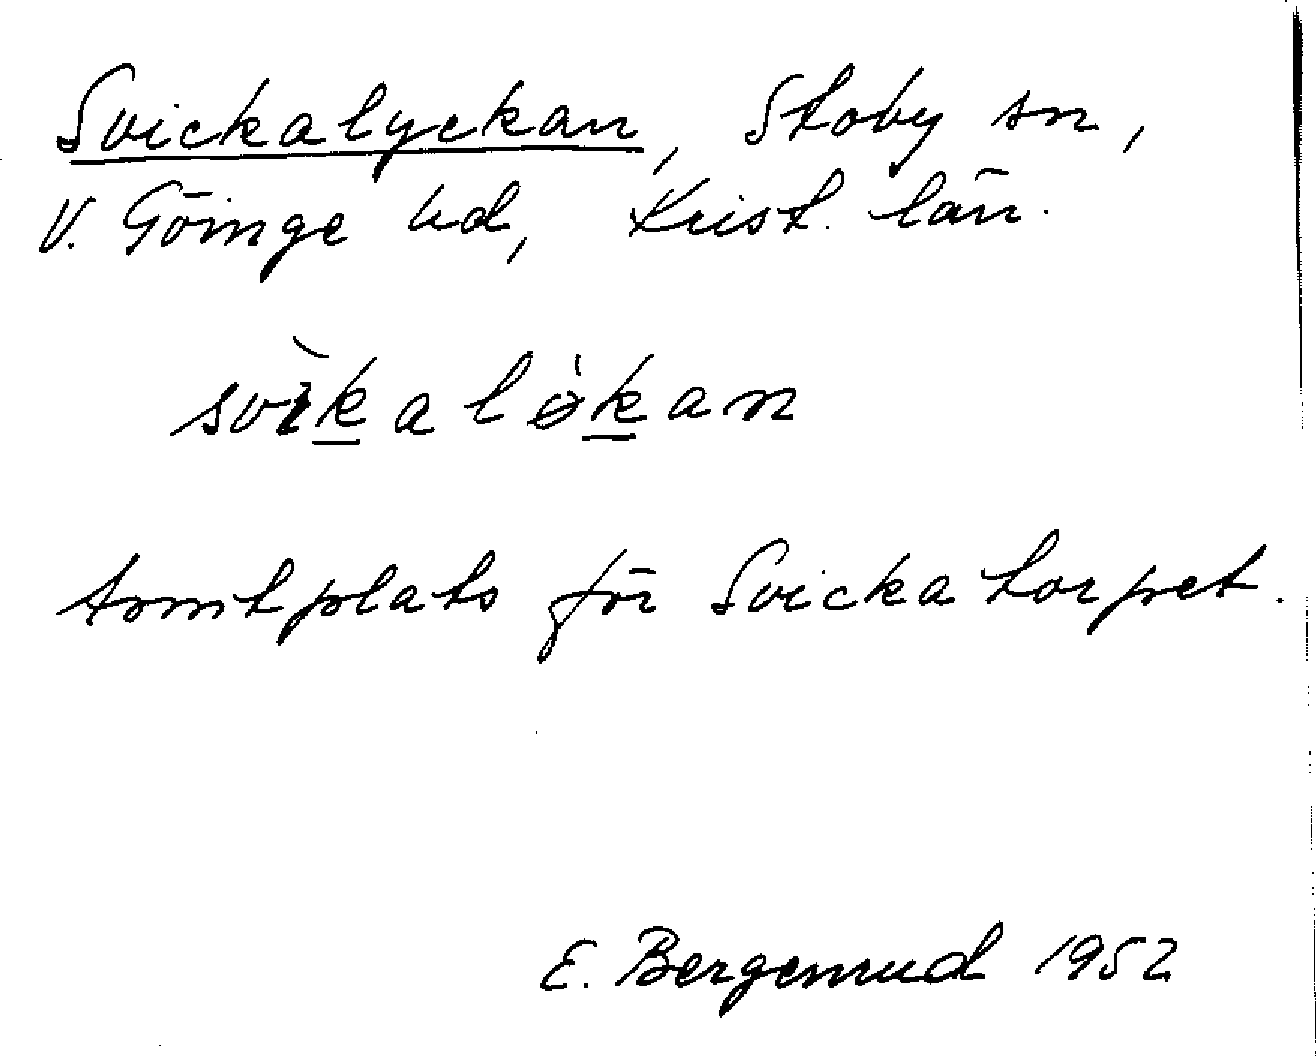 Svickalyckan, Stoby sn,
V. Göinge hd, Krist. län.
svìkalökan
tomtplats för Svickatorpet.
E. Bergenrud 1952